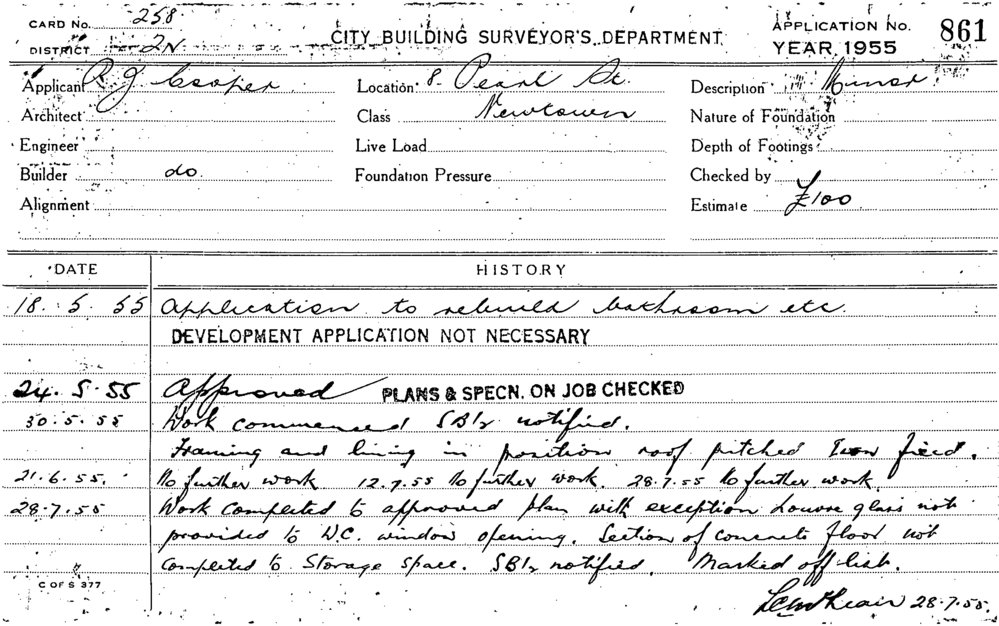 CARD No. 258
DISTRICT 2N
CITY BUILDING SURVEYOR'S DEPARTMENT
APPLICATION No. 861
YEAR 1955
Applicant R J Cooper
Location 8 Pearl St
Description Minor
Architect
Class Newtown
Nature of Foundation
Engineer
Live Load
Depth of Footings
Builder do
Foundation Pressure
Checked by
Alignment
Estimate £100
DATE HISTORY
18. 5. 55 Application to rebuild bathroom etc.
DEVELOPMENT APPLICATION NOT NECESSARY
24. 5. 55 Approved PLANS & SPECN. ON JOB CHECKED
30. 5. 55 Work commenced notified.
Framing and lining in position roof pitched Iron fixed.
21. 6. 55. No further work. 12.7.55 No further work. 28.7.55 No further work
28.7.55 Work completed to approved plan with exception Louvre glass not
provided to W.C. window opening. Section of concrete floor not
completed to Storage Space. notified. Marked off list.
C OF S 377
28.7.55.